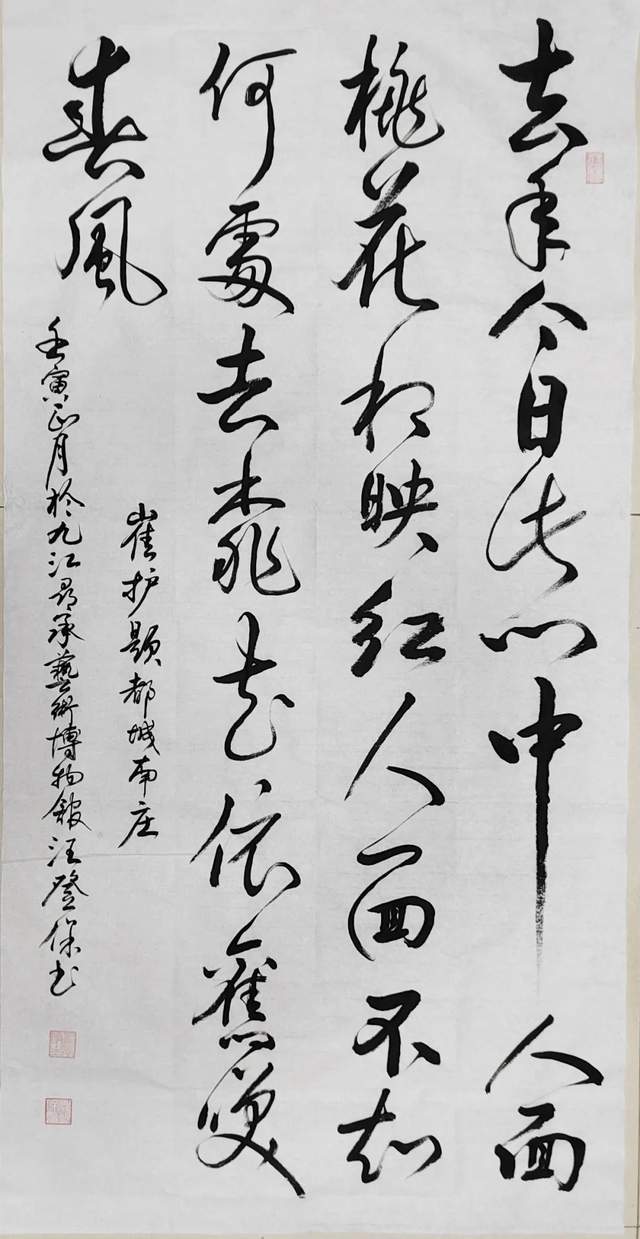 去年今日此门中人面
桃花相映红人面不知
何處去桃花依舊笑
春風
崔护题都城南庄
壬寅正月於九江尋承藝術博物館汪登保书